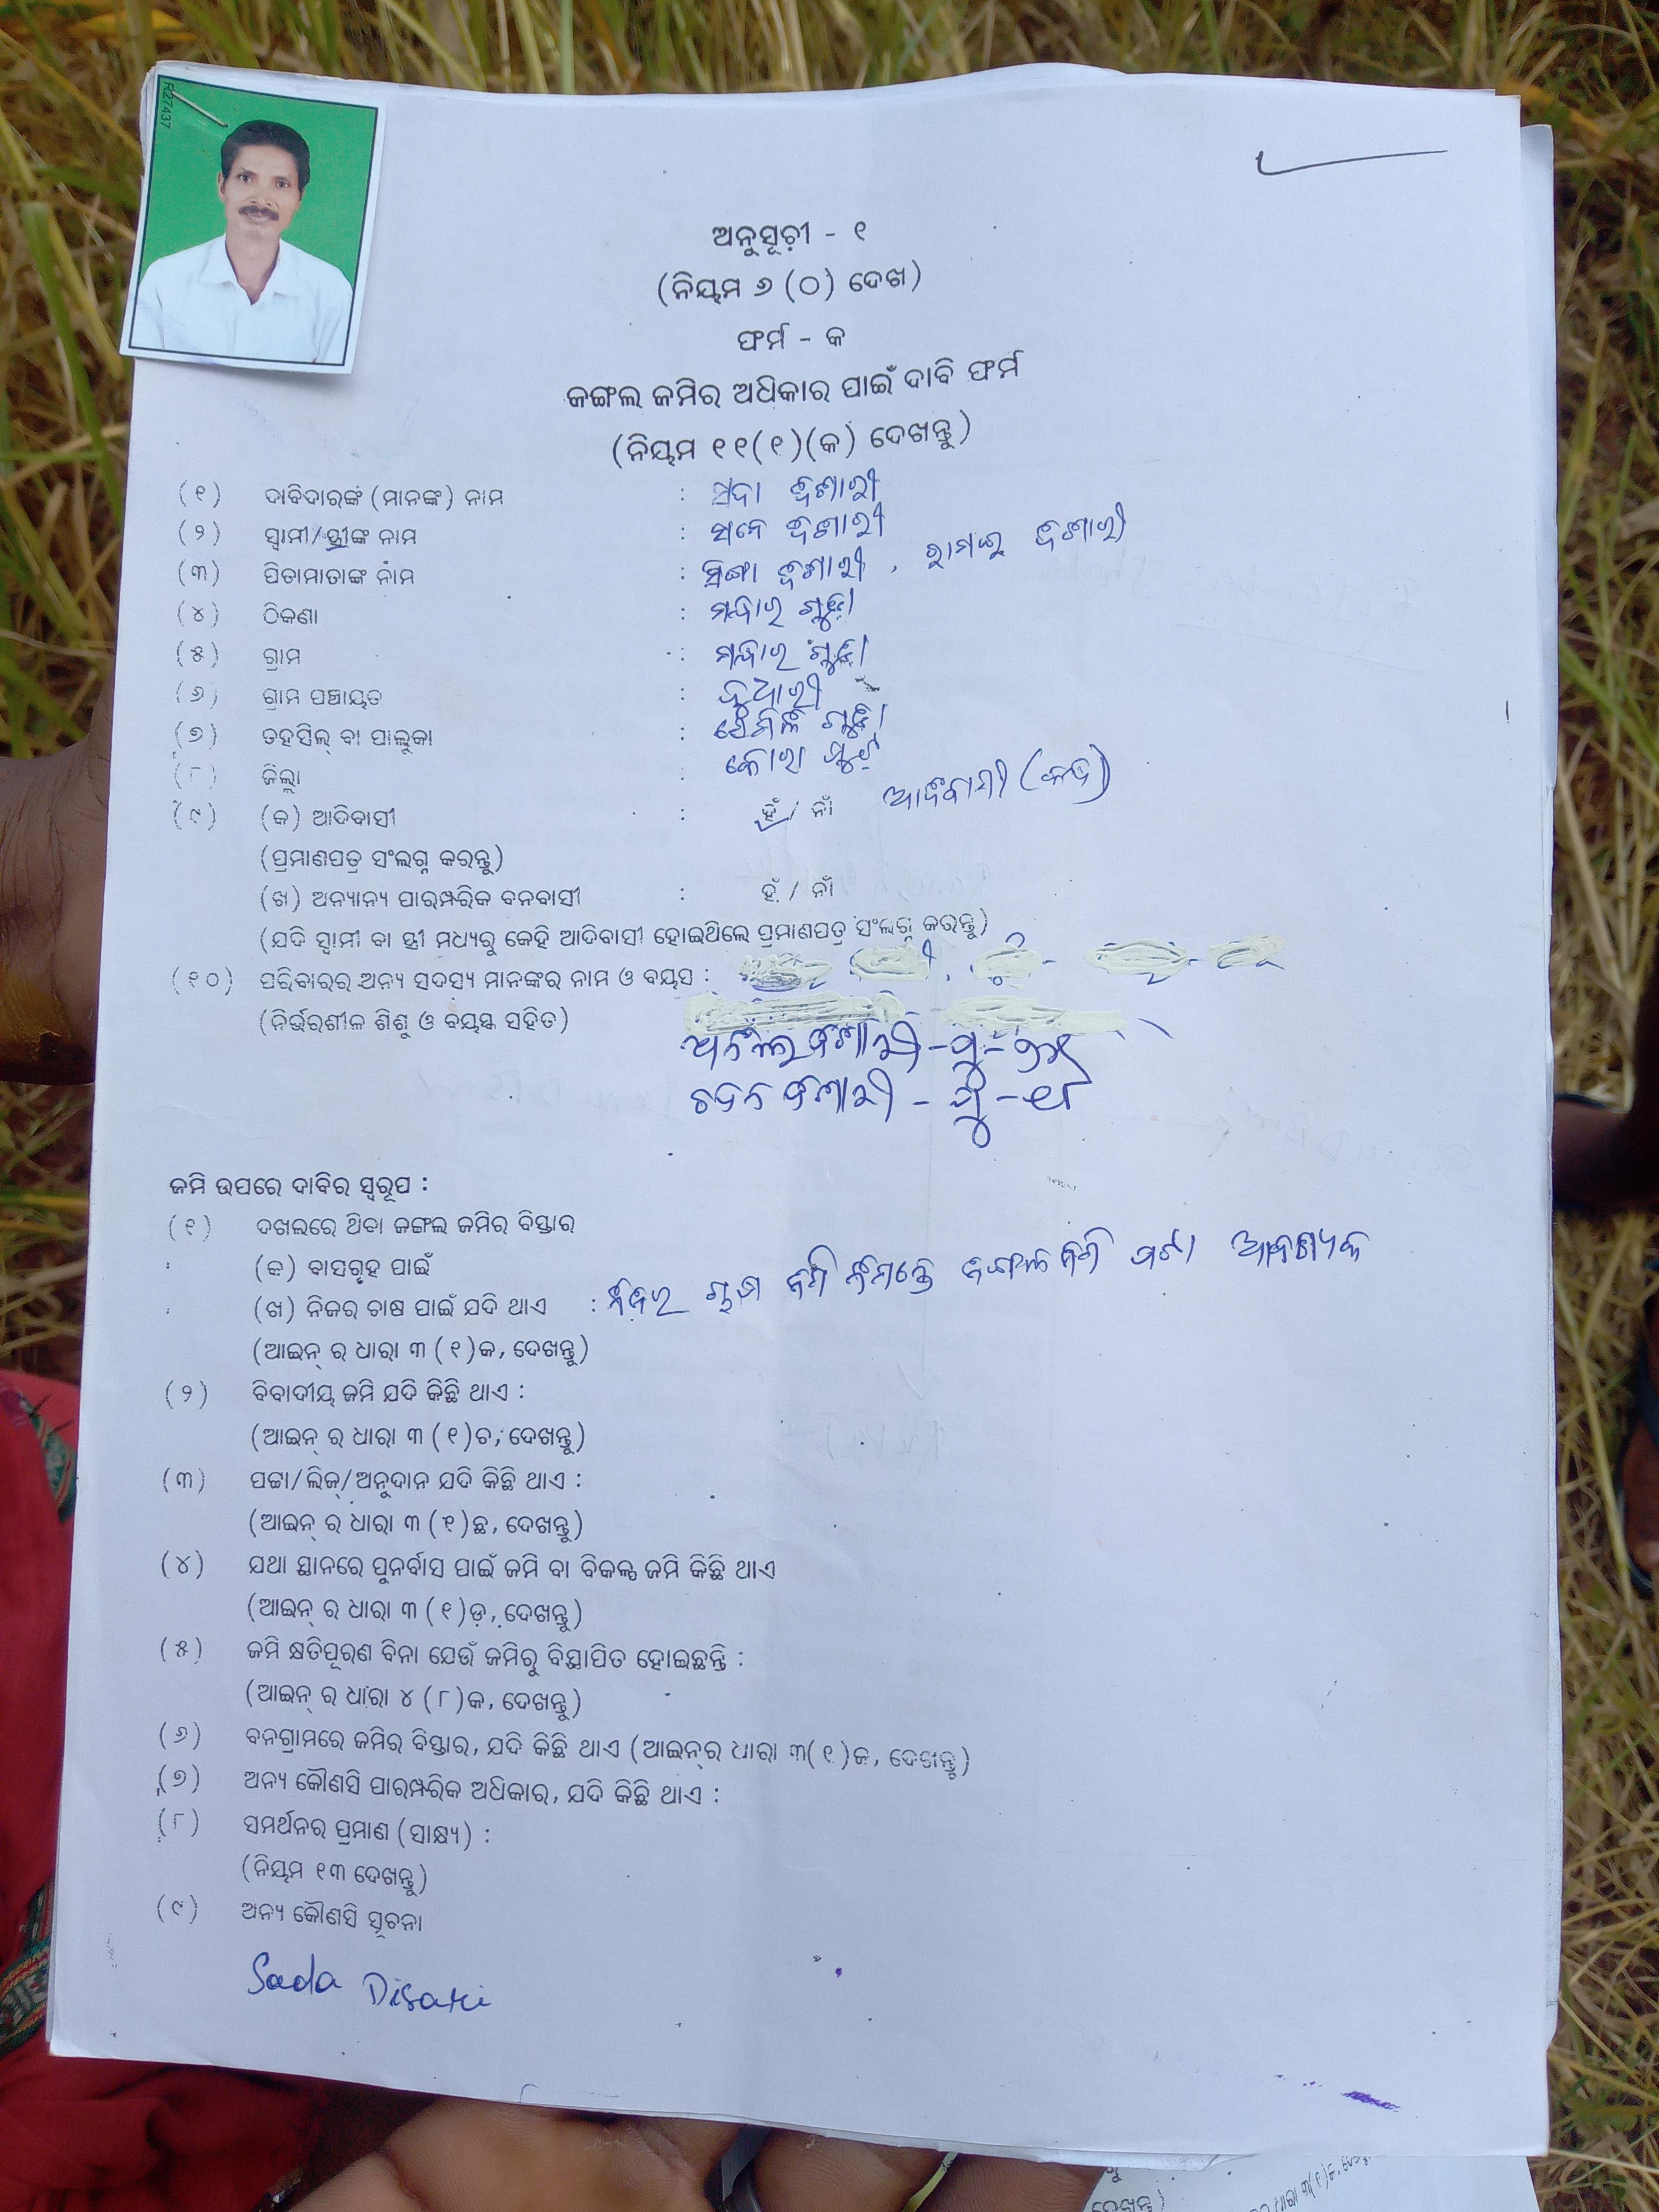 R27437
ଅନୁସୂଚୀ - ୧
(ନିୟମ ୬ (୦) ଦେଖ)
ଫର୍ମ - କ
ଜଙ୍ଗଲ ଜମିର ଅଧିକାର ପାଇଁ ଦାବି ଫର୍ମ
(ନିୟମ ୧୧(୧)(କ) ଦେଖନ୍ତୁ)
(୧) ଦାବିଦାରଙ୍କ (ମାନଙ୍କ) ନାମ : ସଦା ଦିଶାରୀ
(୨) ସ୍ୱାମୀ/ସ୍ତ୍ରୀଙ୍କ ନାମ : ସନେ ଦିଶାରୀ
(୩) ପିତାମାତାଙ୍କ ନାମ : ଦିଶାରୀ , ଦିଶାରୀ
(୪) ଠିକଣା : ମନ୍ଦାର ଗୁଡ଼ା
(୫) ଗ୍ରାମ : ମନ୍ଦାର ଗୁଡ଼ା
(୬) ଗ୍ରାମ ପଞ୍ଚାୟତ :
(୭) ତହସିଲ୍ ବା ପାଲୁକା : ଗୁଡ଼ା
(୮) ଜିଲ୍ଲା : କୋରାପୁଟ
(୯) (କ) ଆଦିବାସୀ : ହଁ / ନାଁ ଆଦିବାସୀ
(ପ୍ରମାଣପତ୍ର ସଂଲଗ୍ନ କରନ୍ତୁ)
(ଖ) ଅନ୍ୟାନ୍ୟ ପାରମ୍ପରିକ ବନବାସୀ : ହଁ / ନାଁ
(ଯଦି ସ୍ୱାମୀ ବା ସ୍ତ୍ରୀ ମଧ୍ୟରୁ କେହି ଆଦିବାସୀ ହୋଇଥିଲେ ପ୍ରମାଣପତ୍ର ସଂଲଗ୍ନ କରନ୍ତୁ)
(୧୦) ପରିବାରର ଅନ୍ୟ ସଦସ୍ୟ ମାନଙ୍କର ନାମ ଓ ବୟସ :
(ନିର୍ଭରଶୀଳ ଶିଶୁ ଓ ବୟସ୍କ ସହିତ)
ଦିଶାରୀ - ପୁ -
ଦିଶାରୀ - ପୁ -
ଜମି ଉପରେ ଦାବିର ସ୍ୱରୂପ :
(୧) ଦଖଲରେ ଥିବା ଜଙ୍ଗଲ ଜମିର ବିସ୍ତାର
: (କ) ବାସଗୃହ ପାଇଁ
: (ଖ) ନିଜର ଚାଷ ପାଇଁ ଯଦି ଥାଏ : ନିଜର ଚାଷ ଜମି ନିମନ୍ତେ ଜଙ୍ଗଲ ଜମି ପଟା ଆବଶ୍ୟକ
(ଆଇନ୍ ର ଧାରା ୩ (୧)କ, ଦେଖନ୍ତୁ)
(୨) ବିବାଦୀୟ ଜମି ଯଦି କିଛି ଥାଏ :
(ଆଇନ୍ ର ଧାରା ୩ (୧)ଚ, ଦେଖନ୍ତୁ)
(୩) ପଟ୍ଟା/ଲିଜ୍/ଅନୁଦାନ ଯଦି କିଛି ଥାଏ :
(ଆଇନ୍ ର ଧାରା ୩ (୧)ଛ, ଦେଖନ୍ତୁ)
(୪) ଯଥା ସ୍ଥାନରେ ପୁନର୍ବାସ ପାଇଁ ଜମି ବା ବିକଳ୍ପ ଜମି କିଛି ଥାଏ
(ଆଇନ୍ ର ଧାରା ୩ (୧)ଡ଼, ଦେଖନ୍ତୁ)
(୫) ଜମି କ୍ଷତିପୂରଣ ବିନା ଯେଉଁ ଜମିରୁ ବିସ୍ଥାପିତ ହୋଇଛନ୍ତି :
(ଆଇନ୍ ର ଧାରା ୪ (୮)କ, ଦେଖନ୍ତୁ)
(୬) ବନଗ୍ରାମରେ ଜମିର ବିସ୍ତାର, ଯଦି କିଛି ଥାଏ (ଆଇନ୍‌ର ଧାରା ୩(୧)ଜ, ଦେଖନ୍ତୁ)
(୭) ଅନ୍ୟ କୌଣସି ପାରମ୍ପରିକ ଅଧିକାର, ଯଦି କିଛି ଥାଏ :
(୮) ସମର୍ଥନର ପ୍ରମାଣ (ସାକ୍ଷ୍ୟ) :
(ନିୟମ ୧୩ ଦେଖନ୍ତୁ)
(୯) ଅନ୍ୟ କୌଣସି ସୂଚନା
Sada Disari